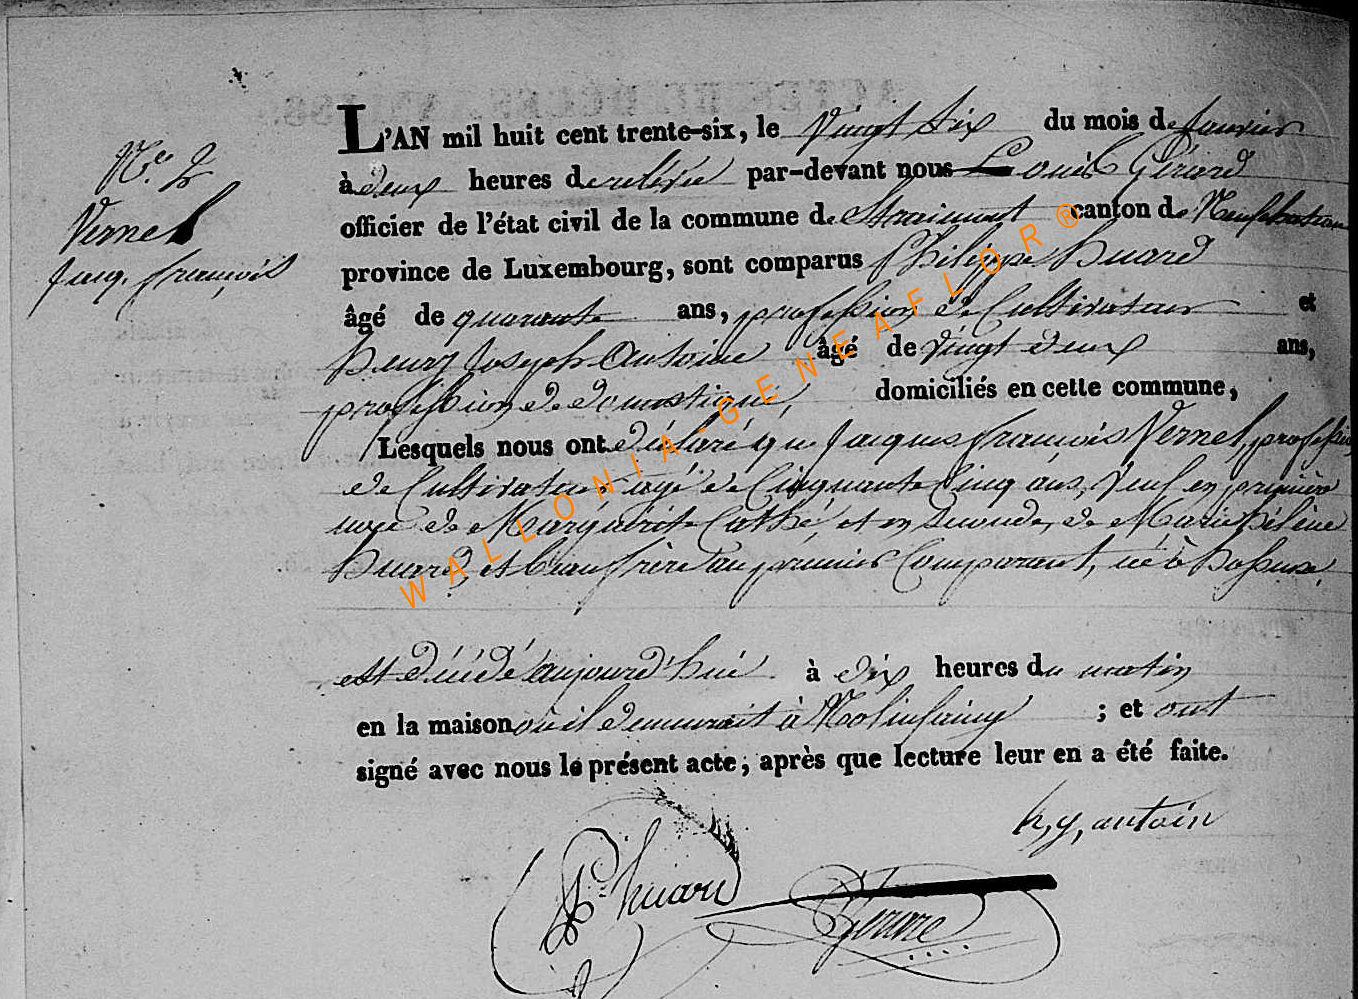 N.o 2
Vernel
Jacq. françois
L'AN mil huit cent trente-six, le Vingt Six du mois de Janvier
à deux heures de relevée par-devant nous Louis Gérard
officier de l'état civil de la commune de Straimont canton de Neufchateau
province de Luxembourg, sont comparus Philippe huard
âgé de quarante ans, profession de Cultivateur et
henry Joseph Antoine âgé de vingt deux ans,
profession de domestique, domiciliés en cette commune,
Lesquels nous ont déclaré que Jacques françois Vernel, profession
de Cultivateur agé de Cinquante Cinq ans, veuf en première
noce de Marguerite Cathé, et en Seconde, de Marie hélène
huard et beau frère au premier Comparant, né à
est décédé aujourd'hui à dix heures du matin
en la maison où il demeurait à Molinfaing ; et ont
signé avec nous le présent acte, après que lecture leur en a été faite.
h, y, antoin
Ph huard
Gerard
WALLONIA-GENEAFLOR®